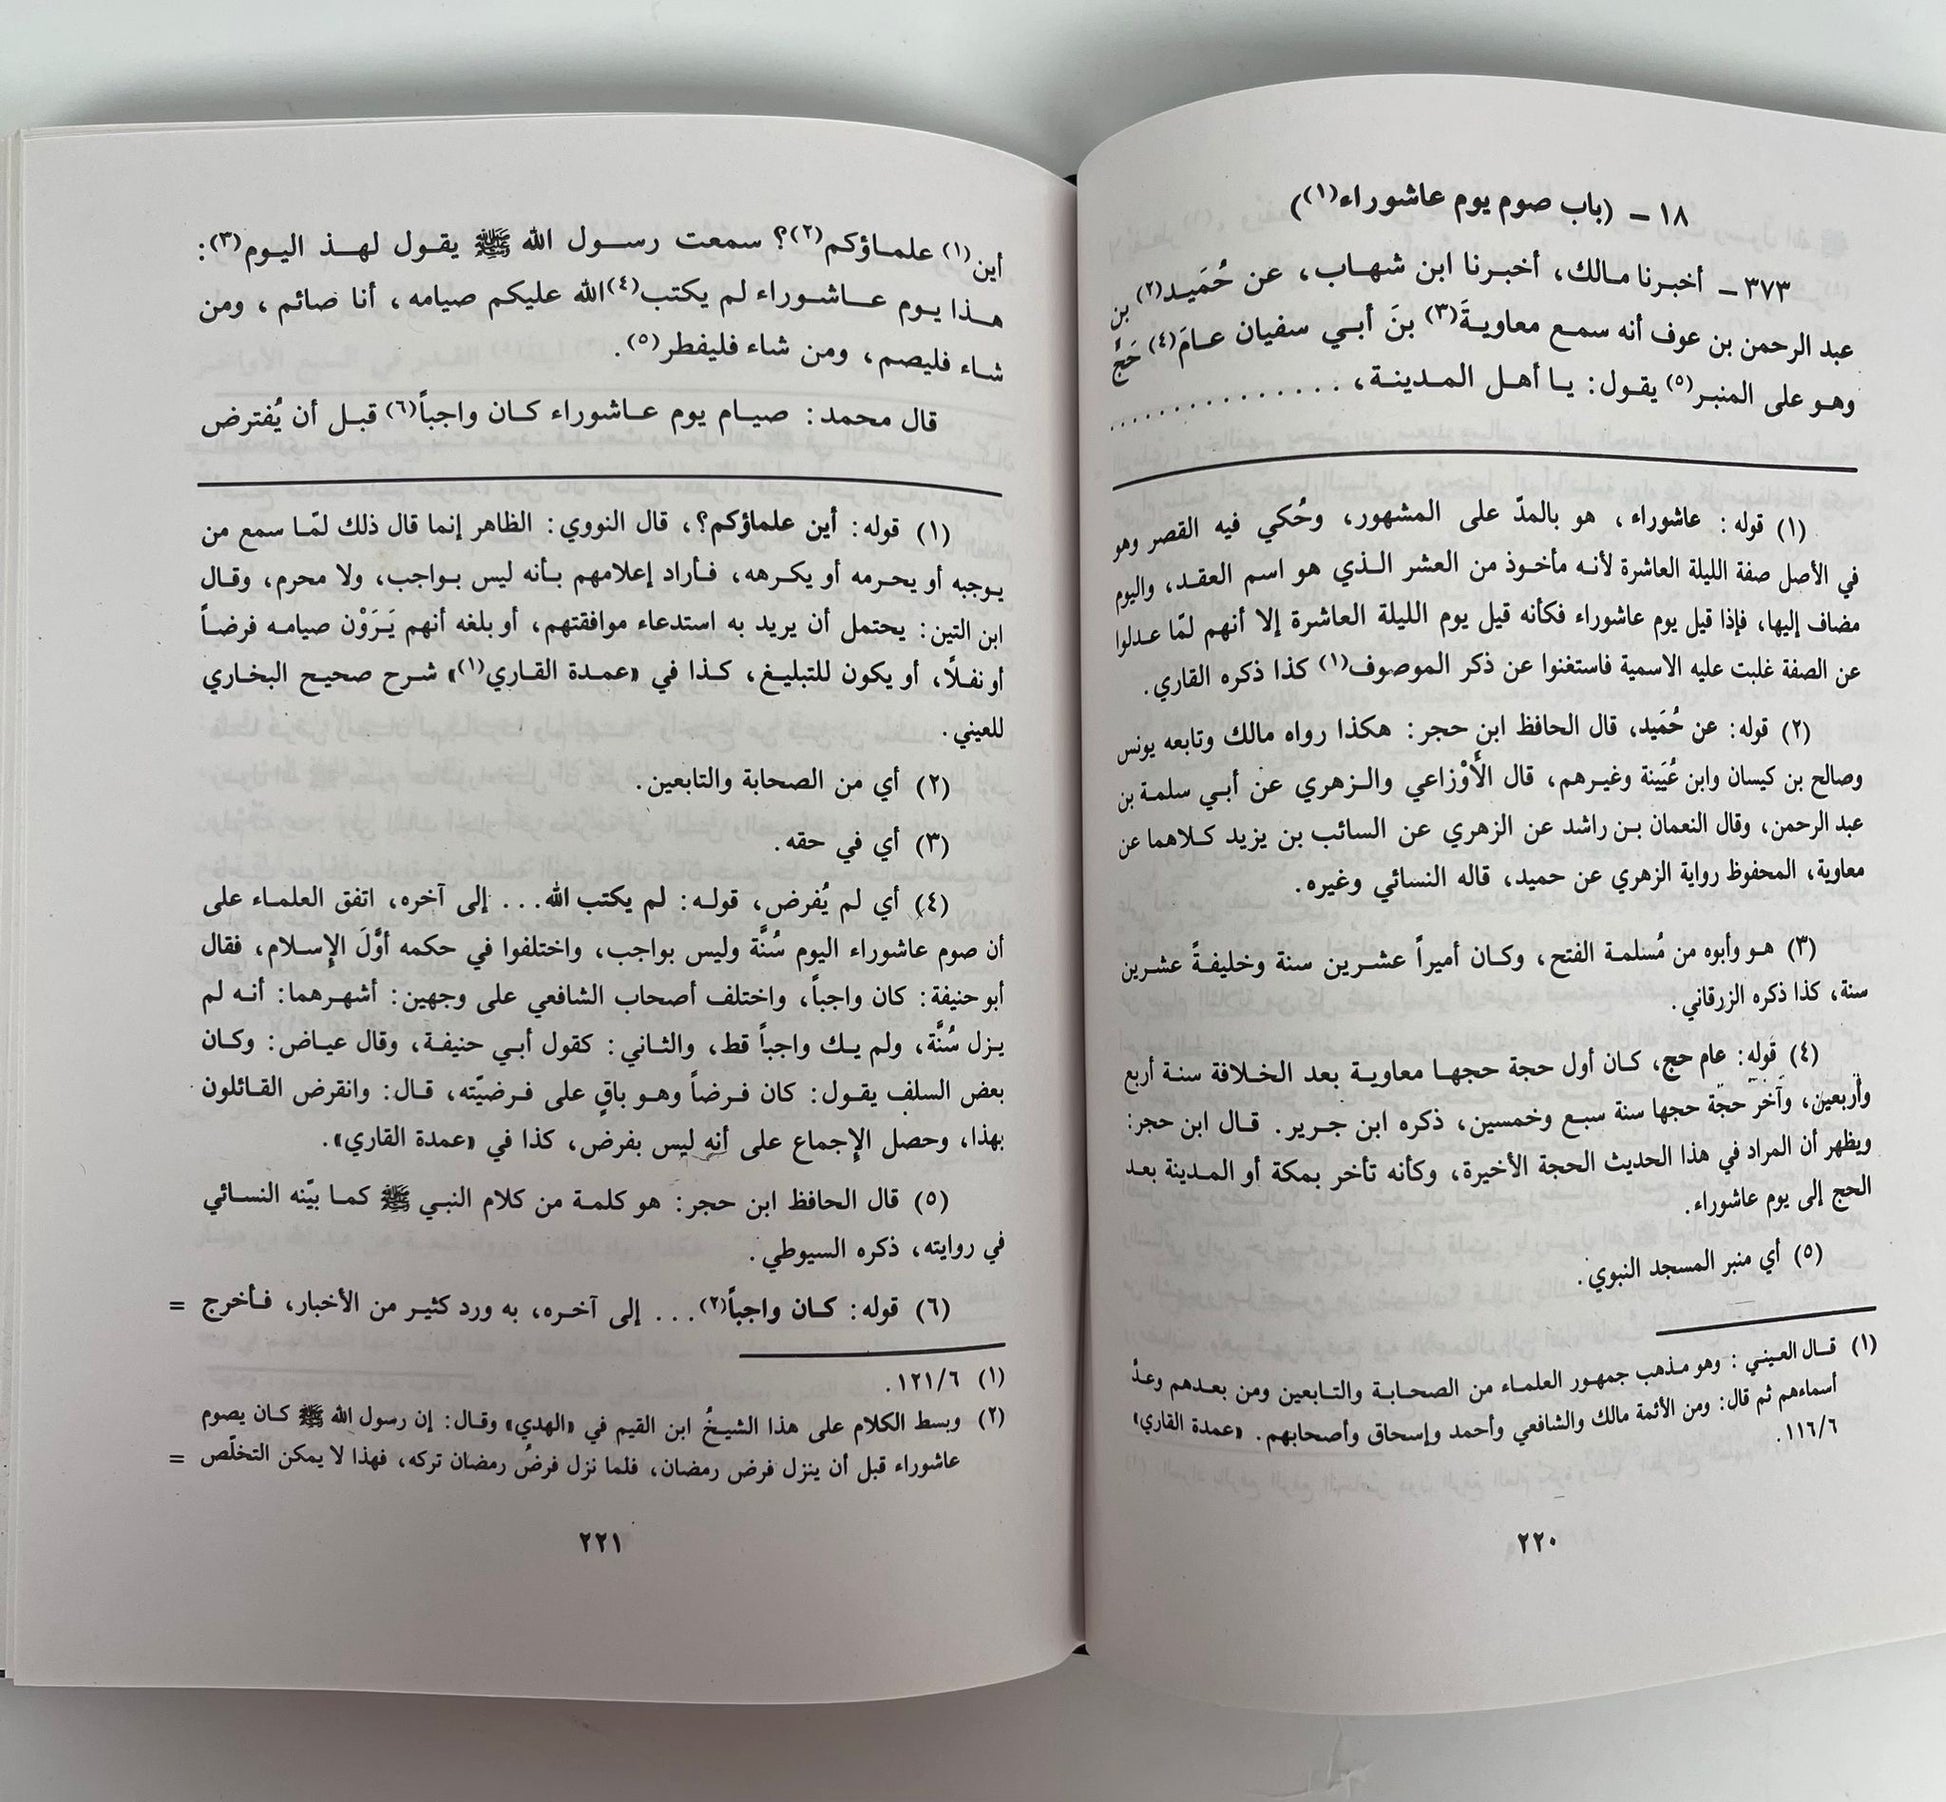 ١٨ - (باب صوم يوم عاشوراء(١))
٣٧٣ - أخبرنا مالك، أخبرنا ابن شهاب، عن حُمَيد(٢) بن
عبد الرحمن بن عوف أنه سمع معاويةَ(٣) بنَ أبي سفيان عامَ(٤) حَجَّ
وهو على المنبر(٥) يقول: يا أهل المدينة، ..............
(١) قوله: عاشوراء، هو بالمدّ على المشهور، وحُكي فيه القصر وهو
في الأصل صفة الليلة العاشرة لأنه مأخوذ من العشر الذي هو اسم العقد، واليوم
مضاف إليها، فإذا قيل يوم عاشوراء فكأنه قيل يوم الليلة العاشرة إلا أنهم لمّا عدلوا
عن الصفة غلبت عليه الاسمية فاستغنوا عن ذكر الموصوف(١) كذا ذكره القاري.
(٢) قوله: عن حُمَيد، قال الحافظ ابن حجر: هكذا رواه مالك وتابعه يونس
وصالح بن كيسان وابن عُيَينة وغيرهم، قال الأَوْزاعي والزهري عن أبي سلمة بن
عبد الرحمن، وقال النعمان بن راشد عن الزهري عن السائب بن يزيد كلاهما عن
معاوية، المحفوظ رواية الزهري عن حميد، قاله النسائي وغيره.
(٣) هو وأبوه من مُسلمة الفتح، وكان أميراً عشرين سنة وخليفةً عشرين
سنة، كذا ذكره الزرقاني.
(٤) قوله: عام حج، كان أول حجة حجها معاوية بعد الخلافة سنة أربع
وأربعين، وآخر حجة حجها سنة سبع وخمسين، ذكره ابن جرير. قال ابن حجر:
ويظهر أن المراد في هذا الحديث الحجة الأخيرة، وكأنه تأخر بمكة أو المدينة بعد
الحج إلى يوم عاشوراء.
(٥) أي منبر المسجد النبوي.
(١) قال العيني: وهو مذهب جمهور العلماء من الصحابة والتابعين ومن بعدهم وعدَّ
أسماءهم ثم قال: ومن الأئمة مالك والشافعي وأحمد وإسحاق وأصحابهم. «عمدة القاري»
١١٦/٦.
٢٢٠
أين(١) علماؤكم(٢)؟ سمعت رسول الله ﷺ يقول لهذ اليوم(٣):
هذا يوم عاشوراء لم يكتب(٤) الله عليكم صيامه، أنا صائم، ومن
شاء فليصم، ومن شاء فليفطر(٥).
قال محمد: صيام يوم عاشوراء كان واجباً(٦) قبل أن يُفترض
(١) قوله: أين علماؤكم؟، قال النووي: الظاهر إنما قال ذلك لمّا سمع من
يوجبه أو يحرمه أو يكرهه، فأراد إعلامهم بأنه ليس بواجب، ولا محرم، وقال
ابن التين: يحتمل أن يريد به استدعاء موافقتهم، أو بلغه أنهم يَرَوْن صيامه فرضاً
أو نفلاً، أو يكون للتبليغ، كذا في «عمدة القاري(١)» شرح صحيح البخاري
للعيني.
(٢) أي من الصحابة والتابعين.
(٣) أي في حقه.
(٤) أي لم يُفرض، قوله: لم يكتب الله... إلى آخره، اتفق العلماء على
أن صوم عاشوراء اليوم سُنَّة وليس بواجب، واختلفوا في حكمه أوَّلَ الإسلام، فقال
أبو حنيفة: كان واجباً، واختلف أصحاب الشافعي على وجهين: أشهرهما: أنه لم
يزل سُنَّة، ولم يك واجباً قط، والثاني: كقول أبي حنيفة، وقال عياض: وكان
بعض السلف يقول: كان فرضاً وهو باقٍ على فرضيّته، قال: وانقرض القائلون
بهذا، وحصل الإجماع على أنه ليس بفرض، كذا في «عمدة القاري».
(٥) قال الحافظ ابن حجر: هو كلمة من كلام النبي ﷺ كما بيّنه النسائي
في روايته، ذكره السيوطي.
(٦) قوله: كان واجباً(٢)... إلى آخره، به ورد كثير من الأخبار، فأخرج =
(١) ١٢١/٦.
(٢) وبسط الكلام على هذا الشيخُ ابن القيم في «الهدي» وقال: إن رسول الله ﷺ كان يصوم
عاشوراء قبل أن ينزل فرض رمضان، فلما نزل فرضُ رمضان تركه، فهذا لا يمكن التخلّص =
٢٢١